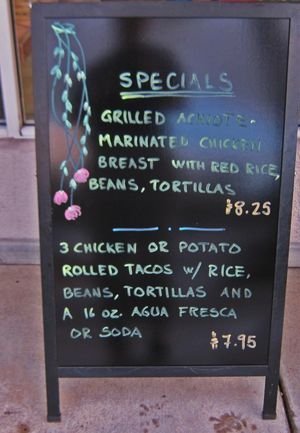 SPECIALS
GRILLED ACHIOTE-
MARINATED CHICKEN
BREAST WITH RED RICE,
BEANS, TORTILLAS
$8.25
3 CHICKEN OR POTATO
ROLLED TACOS W/ RICE,
BEANS, TORTILLAS AND
A 16 OZ. AGUA FRESCA
OR SODA
$7.95